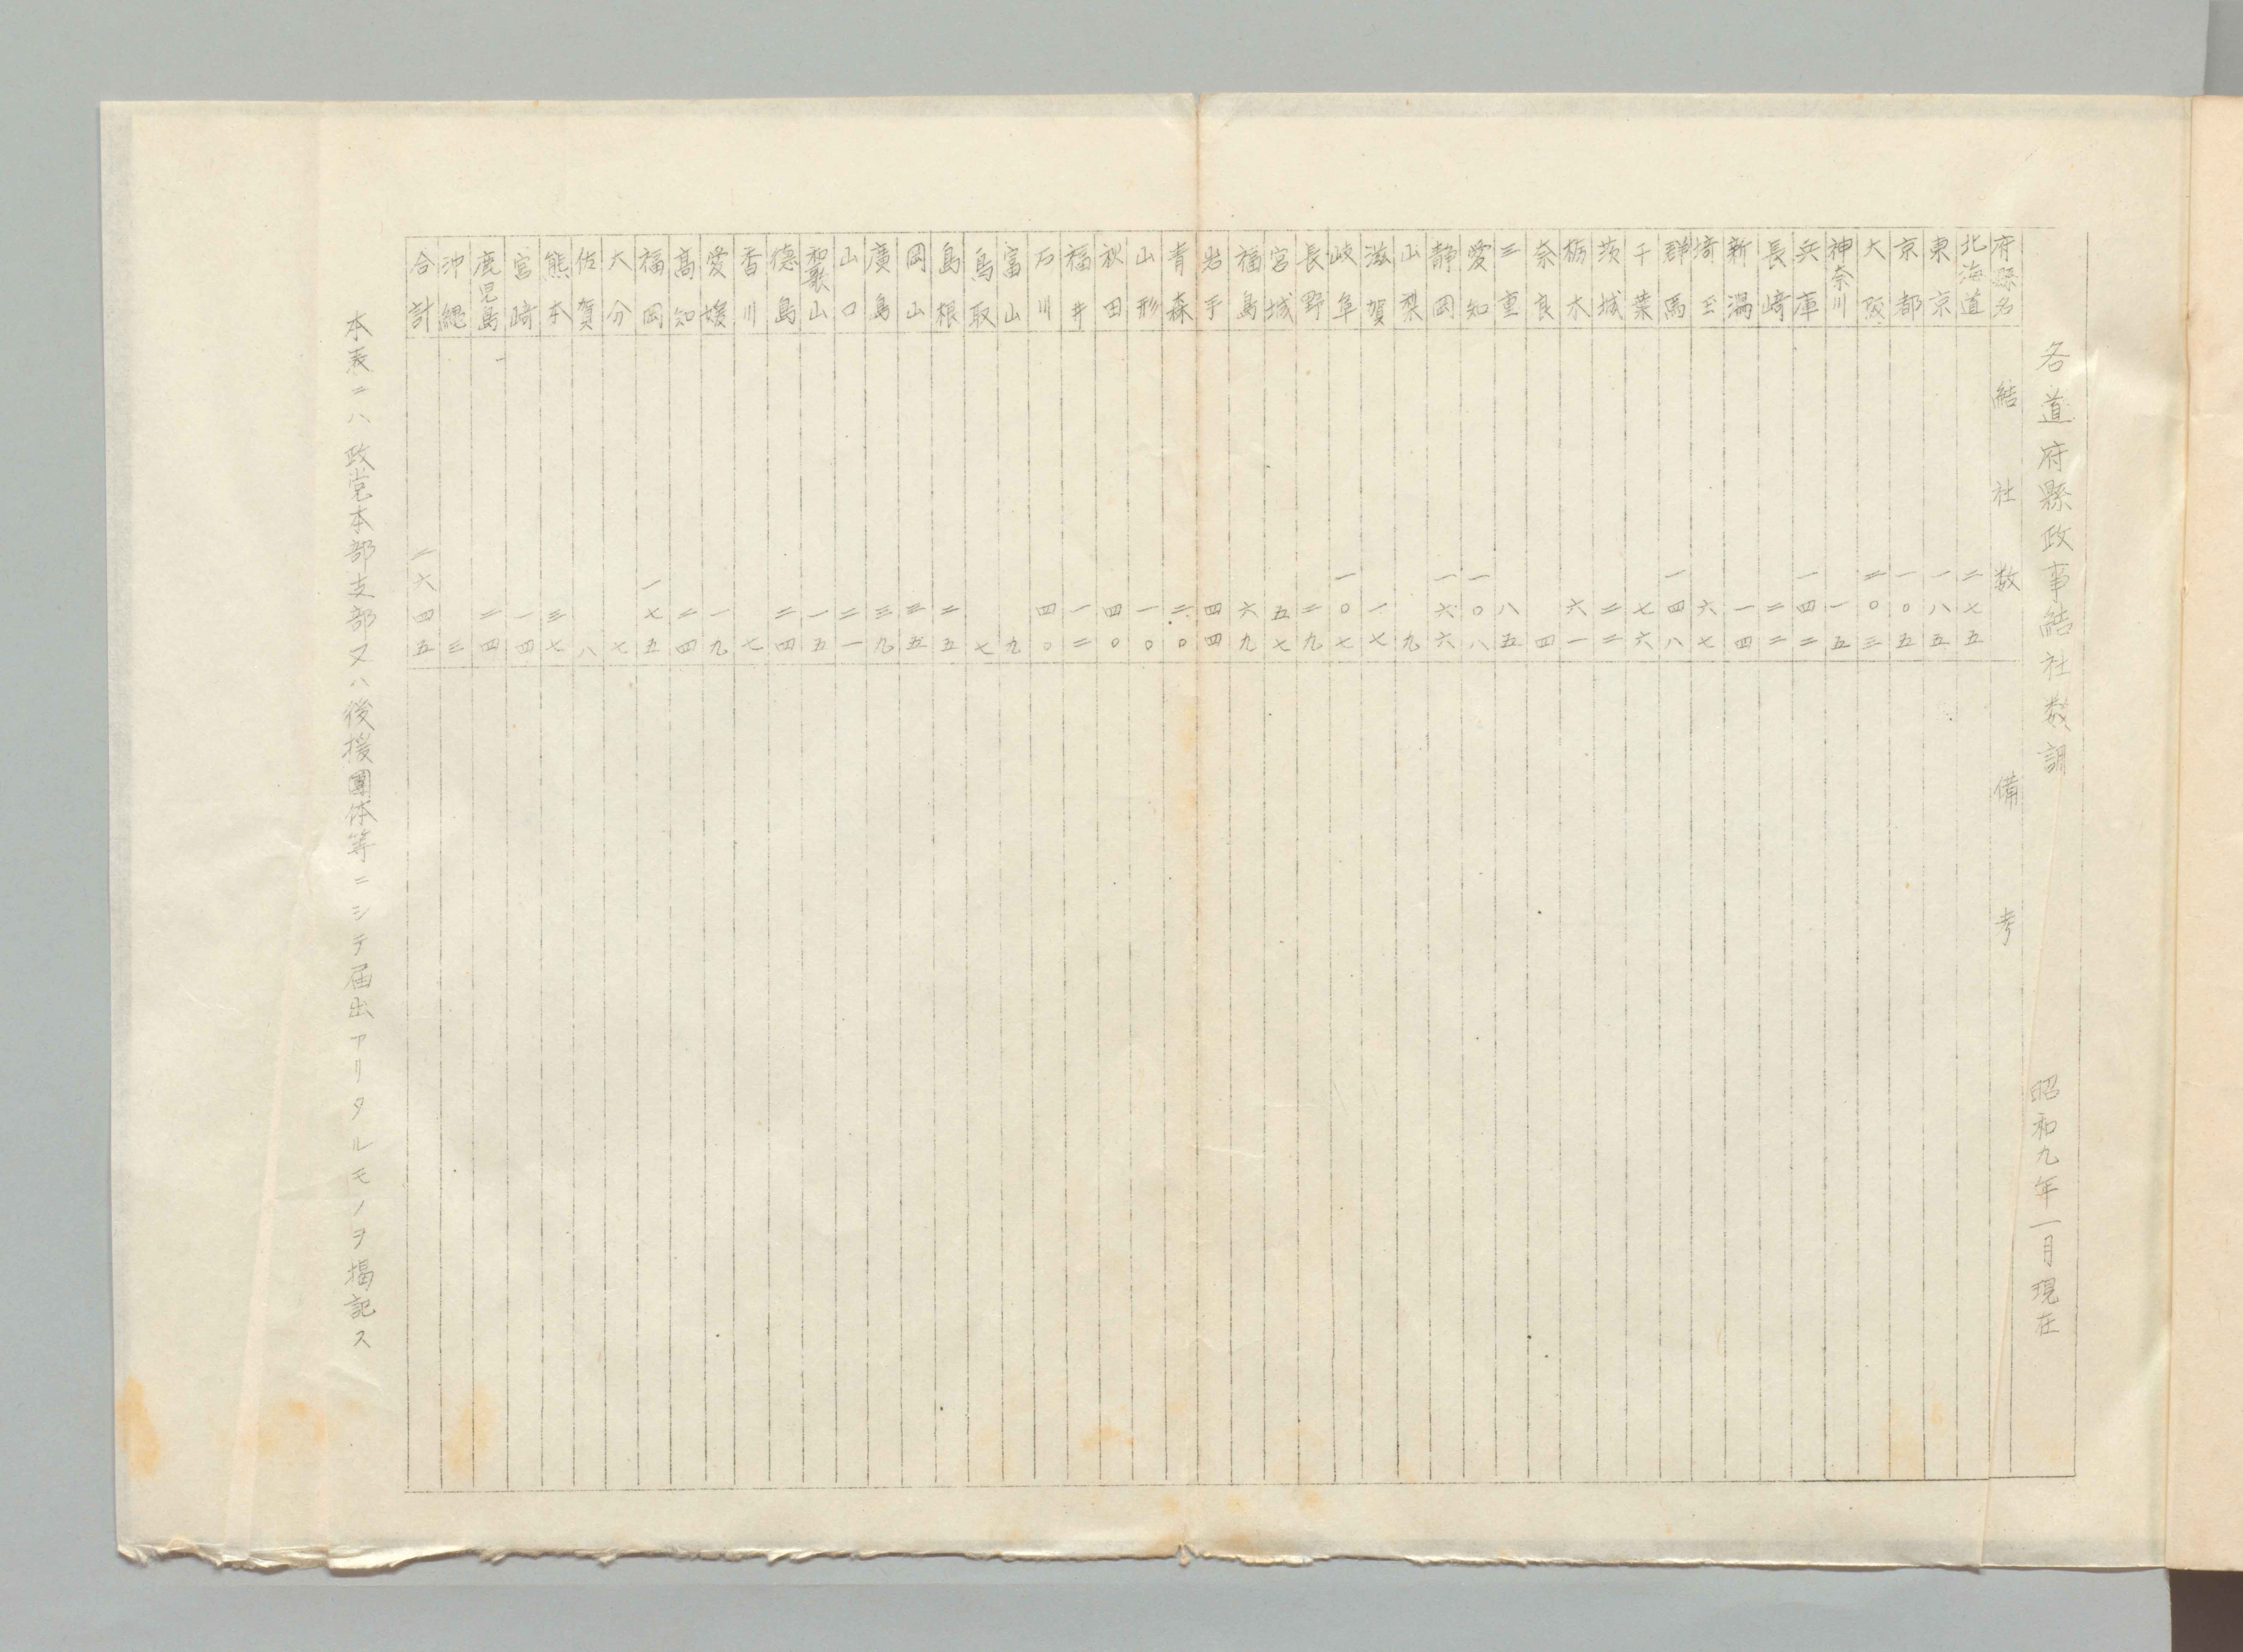 各道府縣政事結社数調 昭和九年一月現在
府縣名 結社数 備考
北海道 二七五
東京 一八五
京都 一〇五
大阪 二〇三
神奈川 一五
兵庫 一四二
長崎 二二
新潟 一四
埼玉 六七
群馬 一四八
千葉 七六
茨城 二二
栃木 六一
奈良 四
三重 八五
愛知 一〇八
静岡 一六六
山梨 九
滋賀 一七
岐阜 一〇七
長野 二九
宮城 五七
福島 六九
岩手 四四
青森 二〇
山形 一〇
秋田 四〇
福井 一二
石川 四〇
富山 九
鳥取 七
島根 二五
岡山 三五
廣島 三九
山口 二一
和歌山 一五
徳島 二四
香川 七
愛媛 一九
高知 二四
福岡 一七五
大分 七
佐賀 八
熊本 三七
宮崎 一四
鹿児島 二四
沖縄 三
合計 二六四五
本表ニハ政党本部支部又ハ後援團体等ニシテ届出アリタルモノヲ掲記ス